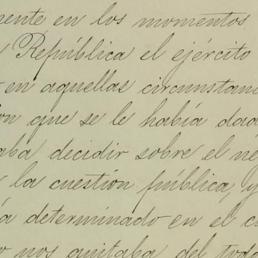 mente en los momentos
República el ejército
en aquellas circunstan
on que se le había dado
aba decidir sobre el ne
la cuestión pública, y
á determinado en el c
nos quitaba del todo